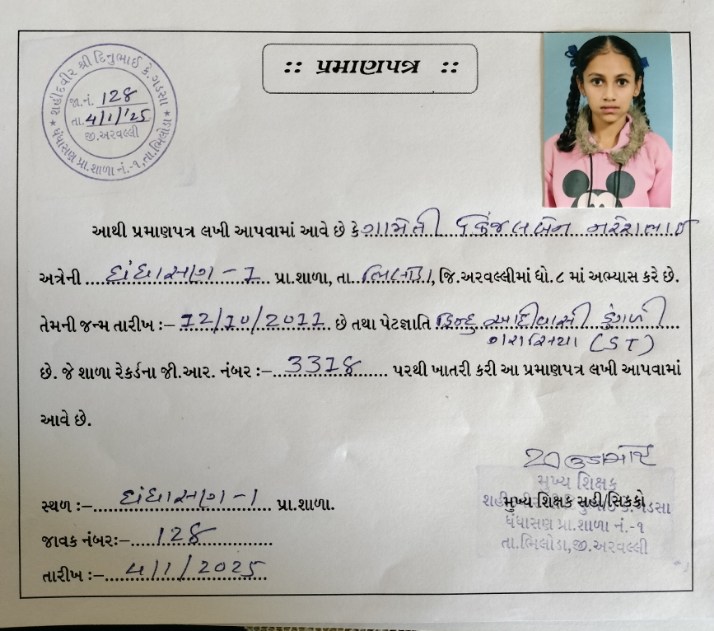 :: પ્રમાણપત્ર ::
શહીદવીર શ્રી દિનુભાઈ કે. ગડસા
જા.નં. 128
તા. 4/1/'25
જી.અરવલ્લી
ધંધાસણ પ્રા.શાળા નં.-૧, તા.ભિલોડા
આથી પ્રમાણપત્ર લખી આપવામાં આવે છે કે ગામેતી કિંજલબેન નરેશભાઈ
અત્રેની ધંધાસણ - 1 પ્રા.શાળા, તા. ભિલોડા, જિ.અરવલ્લીમાં ધો.૮ માં અભ્યાસ કરે છે.
તેમની જન્મ તારીખ :- 12/10/2011 છે તથા પેટજ્ઞાતિ હિન્દુ આદિવાસી ડુંગળી
ગરાસિયા (ST)
છે. જે શાળા રેકર્ડના જી.આર. નંબર :- 3318 પરથી ખાતરી કરી આ પ્રમાણપત્ર લખી આપવામાં
આવે છે.
મુખ્ય શિક્ષક
સ્થળ :- ધંધાસણ - 1 પ્રા.શાળા.
મુખ્ય શિક્ષક સહી/સિક્કો
જાવક નંબર:- 128
ધંધાસણ પ્રા.શાળા નં.-૧
તા.ભિલોડા,જી.અરવલ્લી
તારીખ :- 4/1/2025